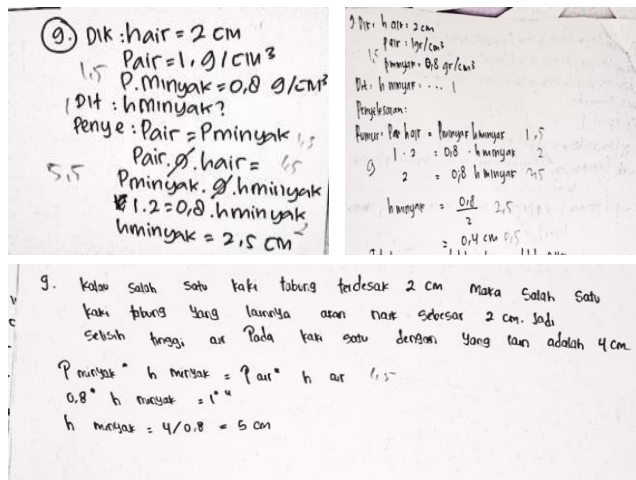 9. DIK : hair = 2 CM
Pair = 1, g/CM³
1,5
P.Minyak = 0,8 g/CM³
1 DIt : hminyak?
Penye : Pair = Pminyak 1,5
Pair.g.hair = 1,5
5,5
Pminyak.g.hminyak
1.2 = 0,8.hminyak
hminyak = 2,5 CM 2
9 Dik : h air : 2 cm
ρair : 1gr/cm³
1,5
ρminyak : 0,8 gr/cm³
Dit : h minyak : .... 1
Penyelesaian :
Rumus : Pair hair = Pminyak hminyak 1,5
1 . 2 : 0,8 . h minyak 2
9
2 = 0,8 h minyak 2,5
h minyak = 0,8 2,5
2
= 0,4 cm 0,5
9. Kalau salah satu kaki tabung terdesak 2 cm maka salah satu
kaki tabung yang lainnya akan naik sebesar 2 cm. Jadi
selisih tinggi air pada kaki satu dengan yang lain adalah 4 cm
ρ minyak • h minyak = ρ air • h air 1,5
0,8 • h minyak = 1 • 4
h minyak = 4/0,8 = 5 cm